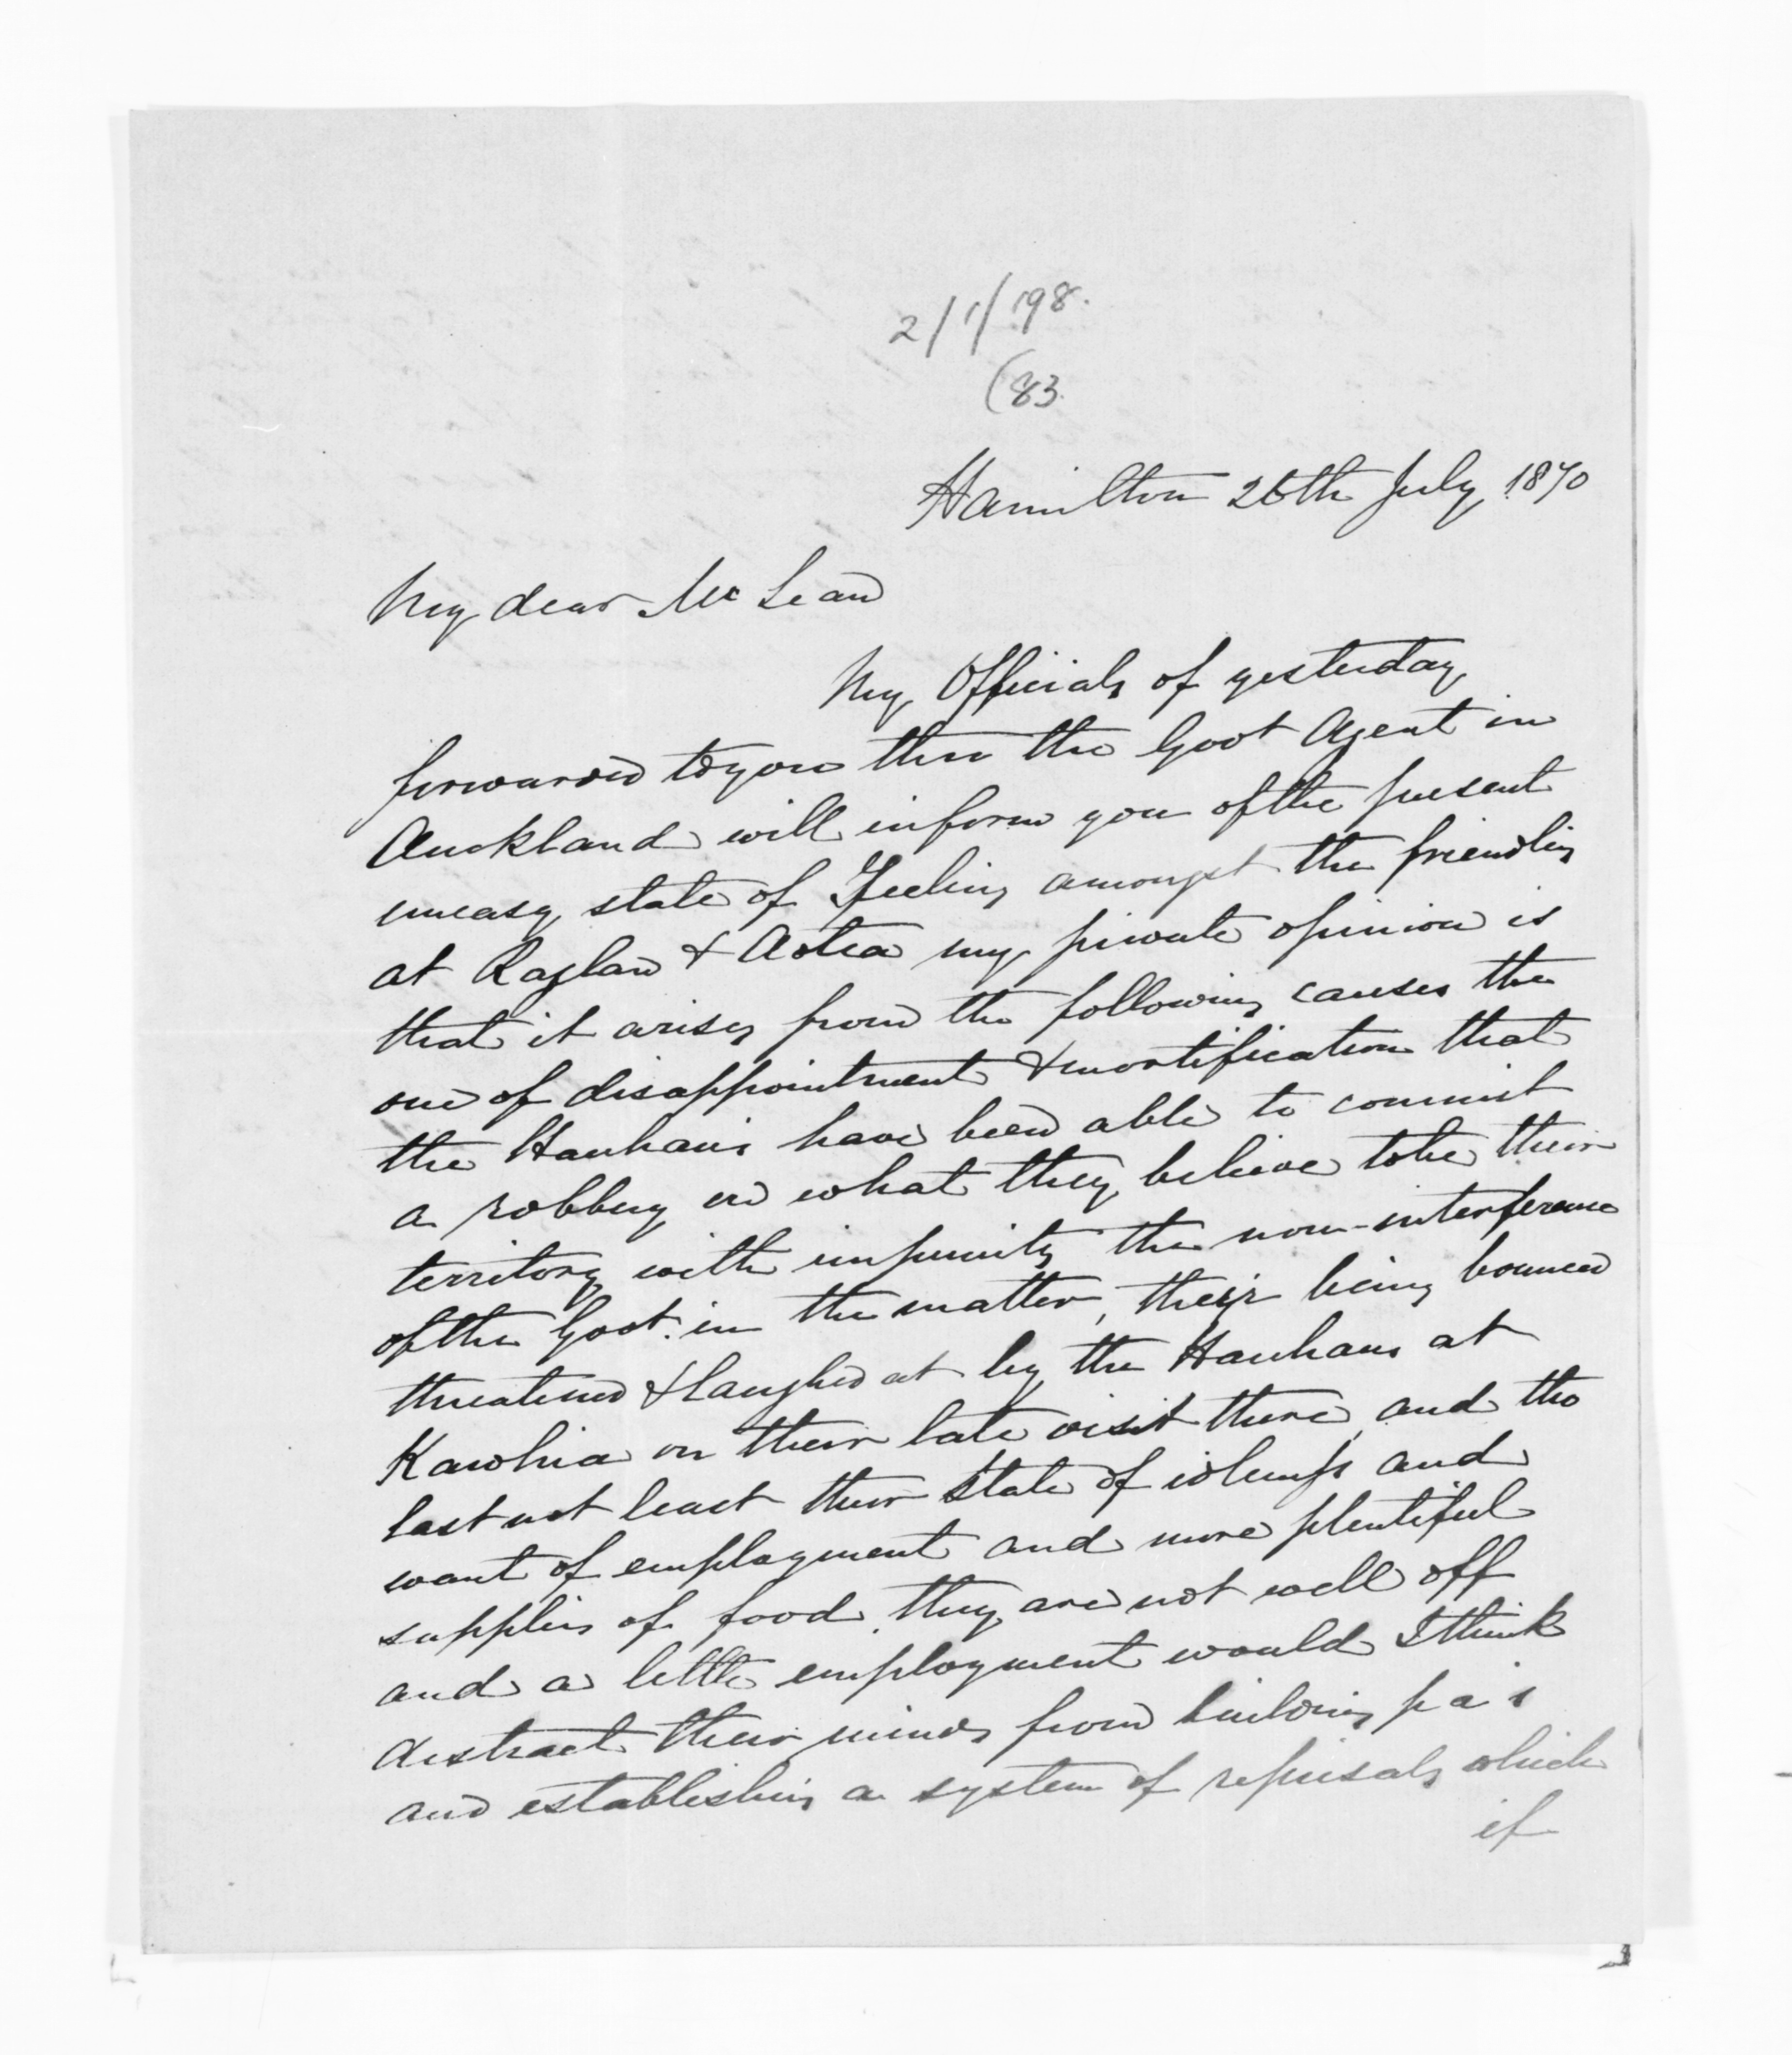 2/1/198.
(83.
Hamilton 26th July 1870
My dear McLean
My Officials of yesterday
forwarded to you thro the Govt Agent in
Auckland will inform you of the present
uneasy state of Feeling amongst the friendlies
at Raglan & Aotea my private opinion is
that it arises from the following causes the
one of disappointment & mortification that
the Hauhaus have been able to commit
a robbery on what they believe to be their
territory with impunity the non-interference
of the Govt. in the matter, their being bounced
threatened & laughed at by the Hauhaus at
Kawhia on their late visit there, and tho
last not least their state of idleness and
want of employment and more plentiful
supplies of food. they are not well off
and a little employment would I think
distract their minds from building pa's
and establishing a system of reprisals which
if